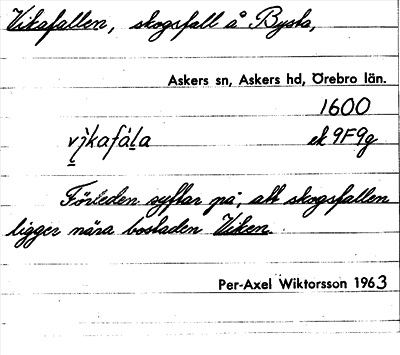 Vikafallen, skogsfall å Bysta,
Askers sn, Askers hd, Örebro län.
1600
vikafála ek 9F9g
Förleden syftar på, att skogsfallen
ligger nära bostaden Viken.
Per-Axel Wiktorsson 1963